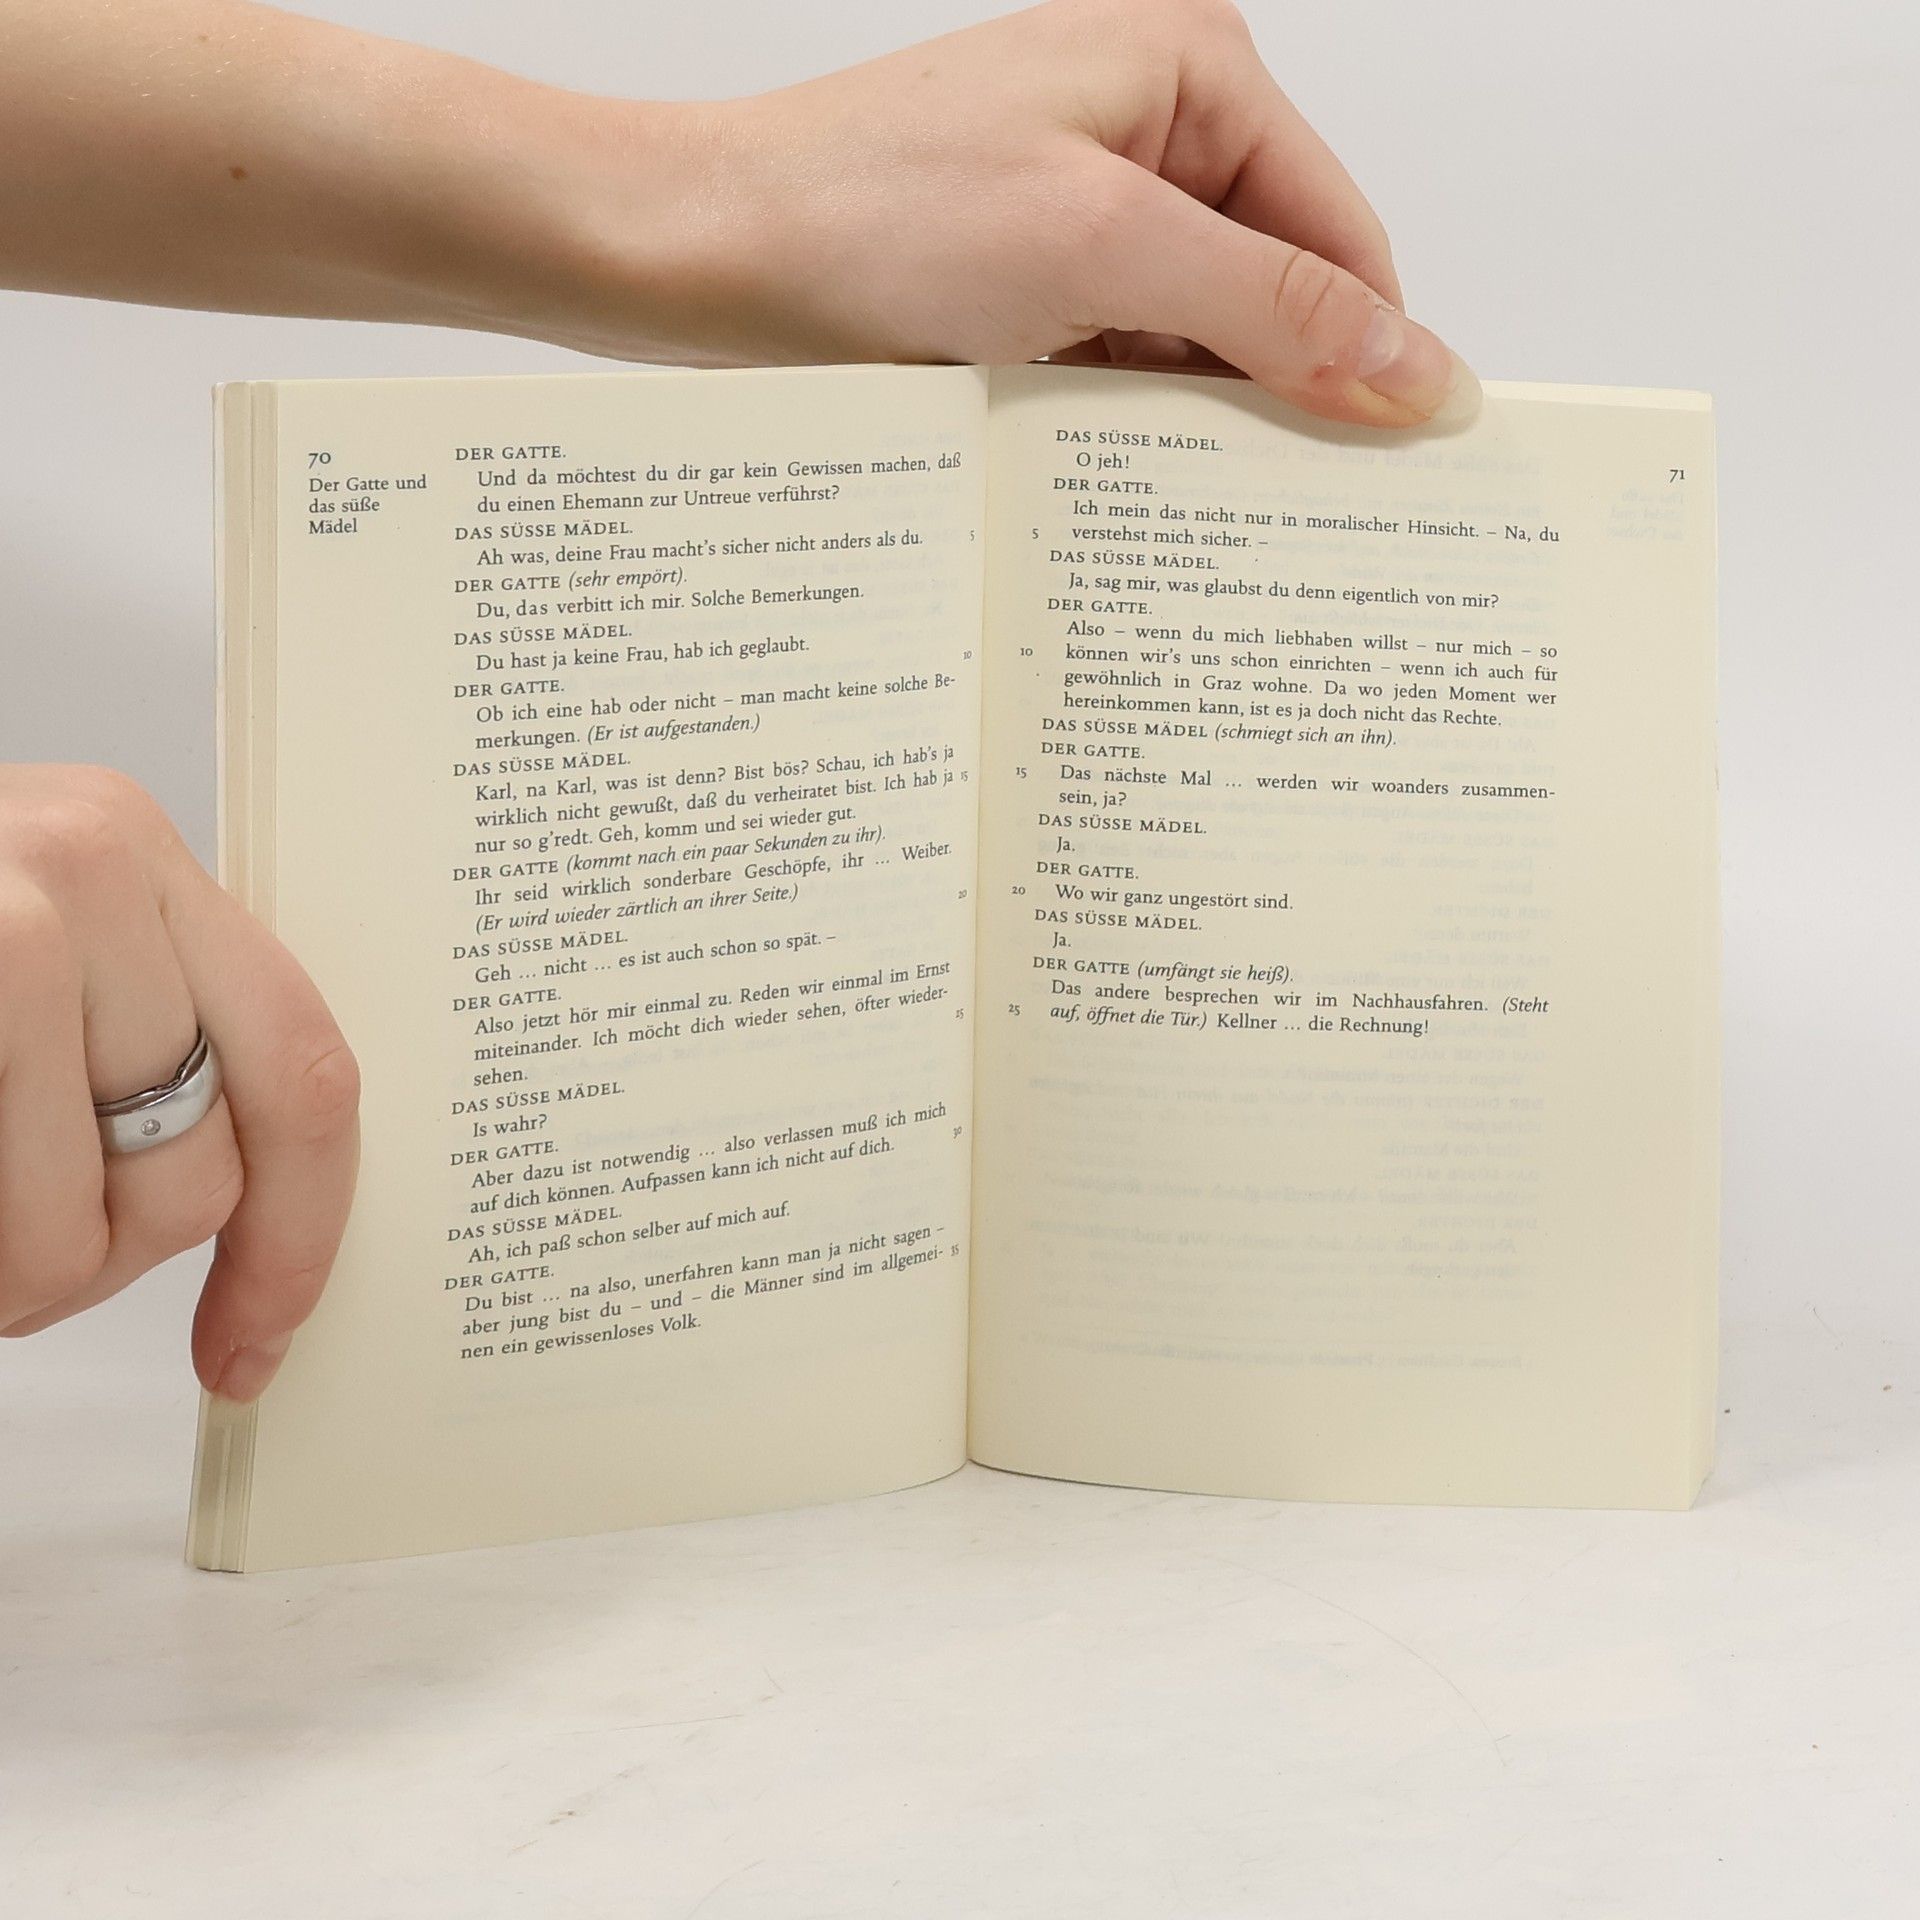 70
Der Gatte und
das süße
Mädel
DER GATTE.
Und da möchtest du dir gar kein Gewissen machen, daß
du einen Ehemann zur Untreue verführst?
DAS SÜSSE MÄDEL.
Ah was, deine Frau macht's sicher nicht anders als du. 5
DER GATTE (sehr empört).
Du, das verbitt ich mir. Solche Bemerkungen.
DAS SÜSSE MÄDEL.
Du hast ja keine Frau, hab ich geglaubt. 10
DER GATTE.
Ob ich eine hab oder nicht – man macht keine solche Be-
merkungen. (Er ist aufgestanden.)
DAS SÜSSE MÄDEL.
Karl, na Karl, was ist denn? Bist bös? Schau, ich hab's ja
wirklich nicht gewußt, daß du verheiratet bist. Ich hab ja 15
nur so g'redt. Geh, komm und sei wieder gut.
DER GATTE (kommt nach ein paar Sekunden zu ihr).
Ihr seid wirklich sonderbare Geschöpfe, ihr ... Weiber.
(Er wird wieder zärtlich an ihrer Seite.) 20
DAS SÜSSE MÄDEL.
Geh ... nicht ... es ist auch schon so spät. –
DER GATTE.
Also jetzt hör mir einmal zu. Reden wir einmal im Ernst
miteinander. Ich möcht dich wieder sehen, öfter wieder- 25
sehen.
DAS SÜSSE MÄDEL.
Is wahr?
DER GATTE.
Aber dazu ist notwendig ... also verlassen muß ich mich
auf dich können. Aufpassen kann ich nicht auf dich. 30
DAS SÜSSE MÄDEL.
Ah, ich paß schon selber auf mich auf.
DER GATTE.
Du bist ... na also, unerfahren kann man ja nicht sagen –
aber jung bist du – und – die Männer sind im allgemei- 35
nen ein gewissenloses Volk.
71
DAS SÜSSE MÄDEL.
O jeh!
DER GATTE.
Ich mein das nicht nur in moralischer Hinsicht. – Na, du
5 verstehst mich sicher. –
DAS SÜSSE MÄDEL.
Ja, sag mir, was glaubst du denn eigentlich von mir?
DER GATTE.
Also – wenn du mich liebhaben willst – nur mich – so
10 können wir's uns schon einrichten – wenn ich auch für
gewöhnlich in Graz wohne. Da wo jeden Moment wer
hereinkommen kann, ist es ja doch nicht das Rechte.
DAS SÜSSE MÄDEL (schmiegt sich an ihn).
DER GATTE.
15 Das nächste Mal ... werden wir woanders zusammen-
sein, ja?
DAS SÜSSE MÄDEL.
Ja.
DER GATTE.
20 Wo wir ganz ungestört sind.
DAS SÜSSE MÄDEL.
Ja.
DER GATTE (umfängt sie heiß).
Das andere besprechen wir im Nachhausfahren. (Steht
25 auf, öffnet die Tür.) Kellner ... die Rechnung!